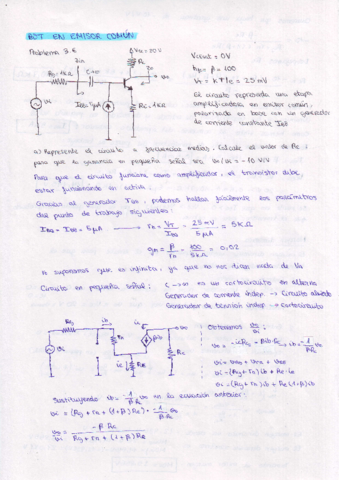 BJT EN EMISOR COMÚN
Problema 3.6
Vcc = 20V
Vi
Vo
Rg = 1KΩ
C → ∞
Zin
Zo
Rc
IBB = 5μA
RE = 1KΩ
hFE = β = 100
VT = KT/e = 25 mV
El circuito representa una etapa
amplificadora en emisor común,
polarizada en base con un generador
de corriente constante IBB
a) Represente el circuito a frecuencias medias. Calcule el valor de Rc
para que la ganancia en pequeña señal sea vo/vi = -10 V/V
Para que el circuito funcione como amplificador, el transistor debe
estar funcionando en activa.
Gracias al generador IBB, podemos hallar fácilmente los parámetros
del punto de trabajo siguientes:
IBQ = IBB = 5μA → rπ = VT/IBQ = 25 mV/5μA = 5KΩ
gm = β/rπ = 100/5KΩ = 0,02
suponemos que es infinita, ya que no nos dicen nada de VA
Circuito en pequeña señal:
C → ∞ es un cortocircuito en alterna
Generador de corriente indep. → Circuito abierto
Generador de tensión indep. → cortocircuito
Rg
ib
ic
vo
vi
rπ
βib
Rc
ie
RE
Obtenemos vo/vi
vo = -icRc = -βibRc → ib = -1/βRc vo
vi = (Rg+rπ)ib + RE·ie
vi = (Rg+rπ)ib + RE(1+β)ib
Sustituyendo ib = -1/βRc vo en la ecuación anterior:
vi = (Rg + rπ + (1+β)RE) · -1/βRc vo
vo/vi = -βRc / Rg + rπ + (1+β)RE